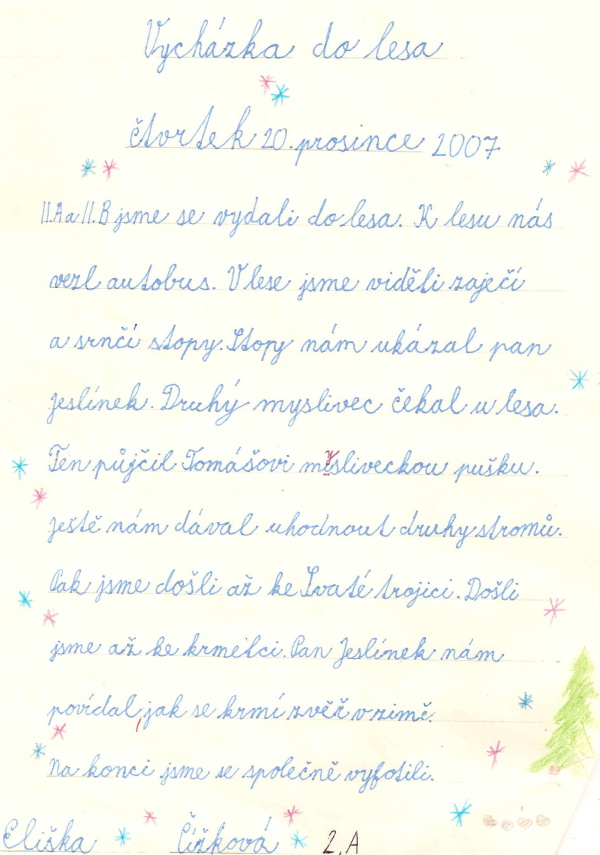 Vycházka do lesa
čtvrtek 20. prosince 2007
II.A a II.B jsme se vydali do lesa. K lesu nás
vezl autobus. V lese jsme viděli zaječí
a srnčí stopy. Stopy nám ukázal pan
Jeslínek. Druhý myslivec čekal u lesa.
Ten půjčil Tomášovi mysliveckou pušku.
Ještě nám dával uhodnout druhy stromů.
Pak jsme došli až ke Svaté trojici. Došli
jsme až ke krmelci. Pan Jeslínek nám
povídal, jak se krmí zvěř v zimě.
Na konci jsme se společně vyfotili.
Eliška Čížková 2.A